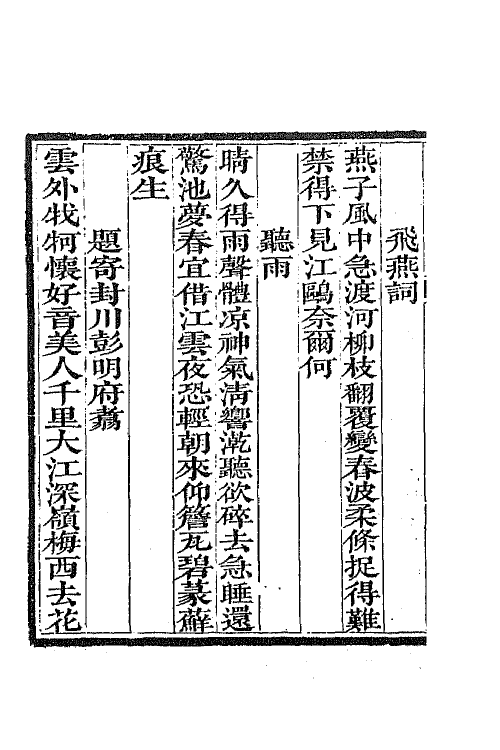 飛燕詞
燕子風中急渡河柳枝翻覆變春波柔條捉得難
禁得下見江鷗奈爾何
聽雨
晴久得雨聲體凉神氣淸響乾聽欲碎去急睡還
驚池夢春宜借江雲夜恐輕朝來仰簷瓦碧蒙蘚
痕生
題寄封川彭明府翥
雲外牂牁懷好音美人千里大江深嶺梅西去花